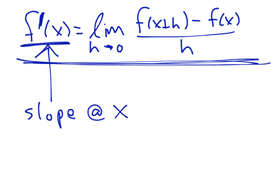 f'(x) = lim h→0 f(x+h) - f(x) / h
slope @ x